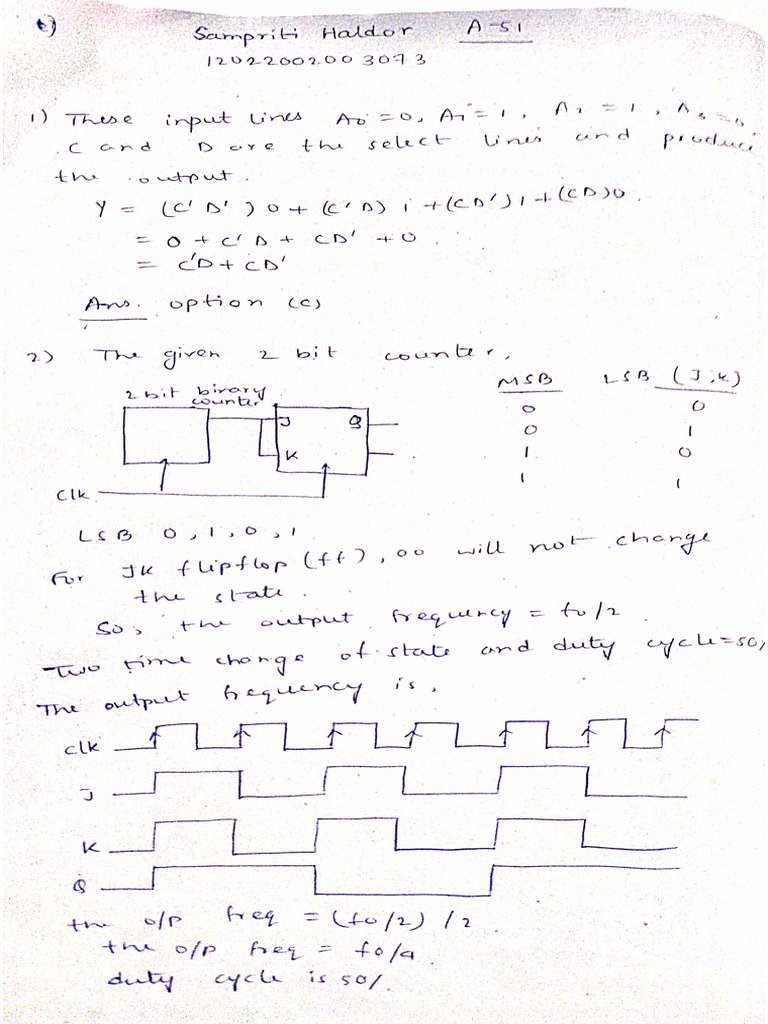 6)
Sampriti Haldor A-51
12022002003073
1) These input lines A0 = 0, A1 = 1, A2 = 1, A3 = 0,
C and D are the select lines and produce
the output.
Y = (C'D')0 + (C'D)1 + (CD')1 + (CD)0
= 0 + C'D + CD' + 0
= C'D + CD'
Ans. option (c)
2) The given 2 bit counter,
MSB LSB (J,K)
0 0
0 1
1 0
1 1
2 bit binary
counter
J Q
K
Clk
LSB 0, 1, 0, 1
For JK flipflop (ff), 00 will not change
the state.
So, the output frequency = fo/2
Two time change of state and duty cycle = 50%
The output frequency is,
Clk
J
K
Q
the o/p freq = (fo/2)/2
the o/p freq = fo/4
duty cycle is 50%